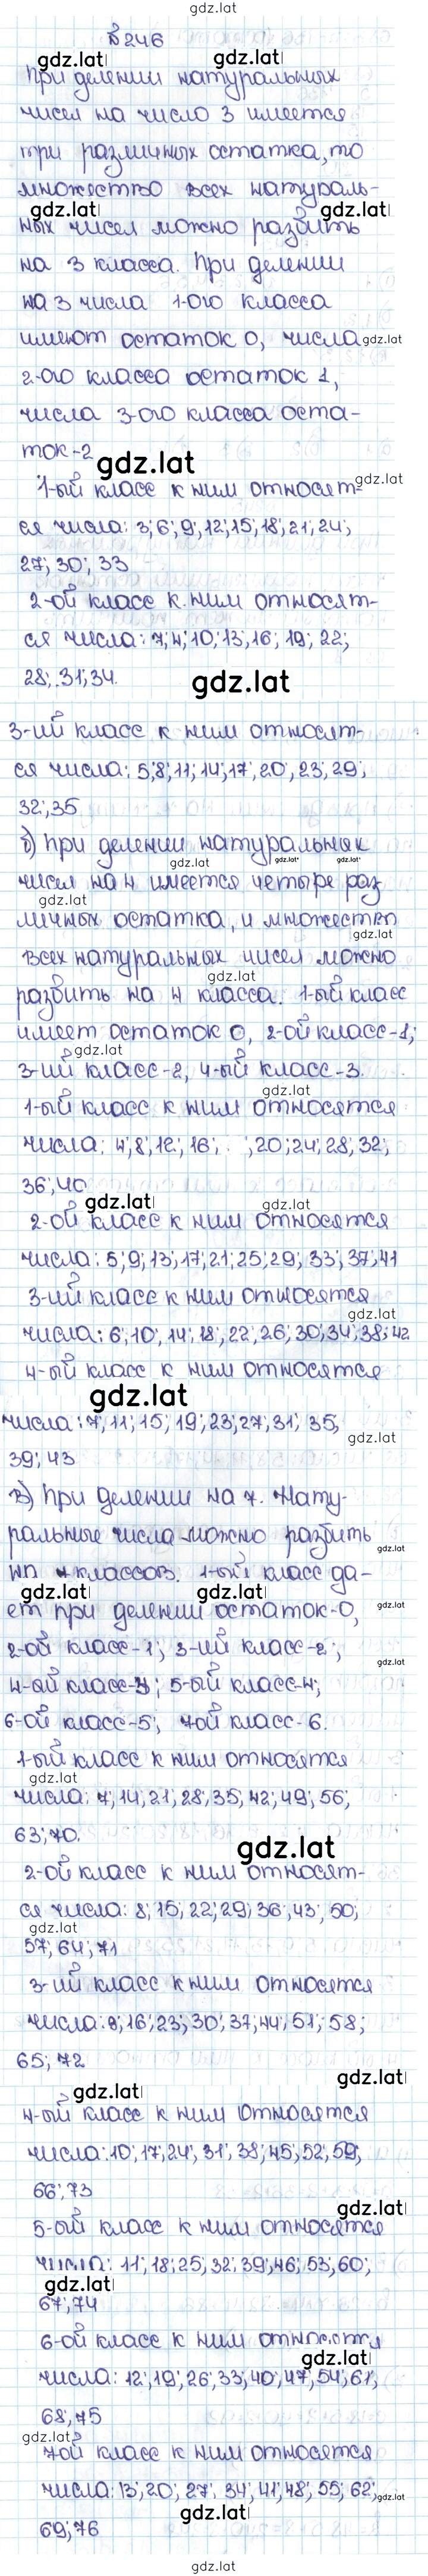 gdz.lat
№ 246
gdz.lat gdz.lat
При делении натуральных
чисел на число 3 имеется
три различных остатка, то
множество всех натураль-
gdz.lat gdz.lat
ных чисел можно разбить
на 3 класса. При делении
на 3 числа 1-ого класса
имеют остаток 0, числа
gdz.lat
2-ого класса остаток 1,
числа 3-ого класса оста-
ток-2
gdz.lat
gdz.lat
1-ый класс к ним относят-
ся числа: 3; 6; 9; 12; 15; 18; 21; 24;
27; 30; 33
2-ой класс к ним относят-
ся числа: 7; 4; 10; 13; 16; 19; 22;
28; 31; 34.
gdz.lat
3-ий класс к ним относят-
ся числа: 5; 8; 11; 14; 17; 20; 23; 29;
32; 35
б) При делении натуральных
gdz.lat gdz.lat gdz.lat
чисел на 4 имеется четыре раз
gdz.lat
личных остатка, и множество
gdz.lat
всех натуральных чисел можно
gdz.lat
разбить на 4 класса. 1-ый класс
имеет остаток 0, 2-ой класс-1;
gdz.lat
3-ий класс-2, 4-ый класс-3.
gdz.lat
1-ый класс к ним относятся
числа: 4; 8; 12; 16; ; 20; 24; 28; 32;
36; 40
gdz.lat gdz.lat
2-ой класс к ним относятся
числа: 5; 9; 13; 17; 21; 25; 29; 33; 37; 41
3-ий класс к ним относятся
gdz.lat
числа: 6; 10; 14; 18; 22; 26; 30; 34; 38; 42
4-ый класс к ним относятся
gdz.lat
числа: 7; 11; 15; 19; 23; 27; 31; 35;
gdz.lat
39; 43
в) При делении на 7. Нату-
ральные числа можно разбить
gdz.lat
на 7 классов. 1-ый класс да-
gdz.lat gdz.lat gdz.lat
ет при делении остаток-0,
2-ой класс-1; 3-ий класс-2;
gdz.lat
4-ый класс-3; 5-ый класс-4;
6-ой класс-5; 7ой класс-6.
1-ый класс к ним относятся
gdz.lat
числа: 7; 14; 21; 28; 35; 42; 49; 56;
63; 70.
gdz.lat
2-ой класс к ним относят-
ся числа: 8; 15; 22; 29; 36; 43; 50;
gdz.lat
57; 64; 71
3-ий класс к ним относятся
числа: 9; 16; 23; 30; 37; 44; 51; 58;
65; 72
gdz.lat
gdz.lat
4-ый класс к ним относятся
числа: 10; 17; 24; 31; 38; 45; 52; 59;
66; 73
gdz.lat
5-ый класс к ним относятся
числа: 11; 18; 25; 32; 39; 46; 53; 60;
gdz.lat
67; 74
6-ой класс к ним относятся
gdz.lat
числа: 12; 19; 26; 33; 40; 47; 54; 61;
68; 75
gdz.lat
7ой класс к ним относятся
числа: 13; 20; 27; 34; 41; 48; 55; 62;
gdz.lat
gdz.lat
69; 76
gdz.lat